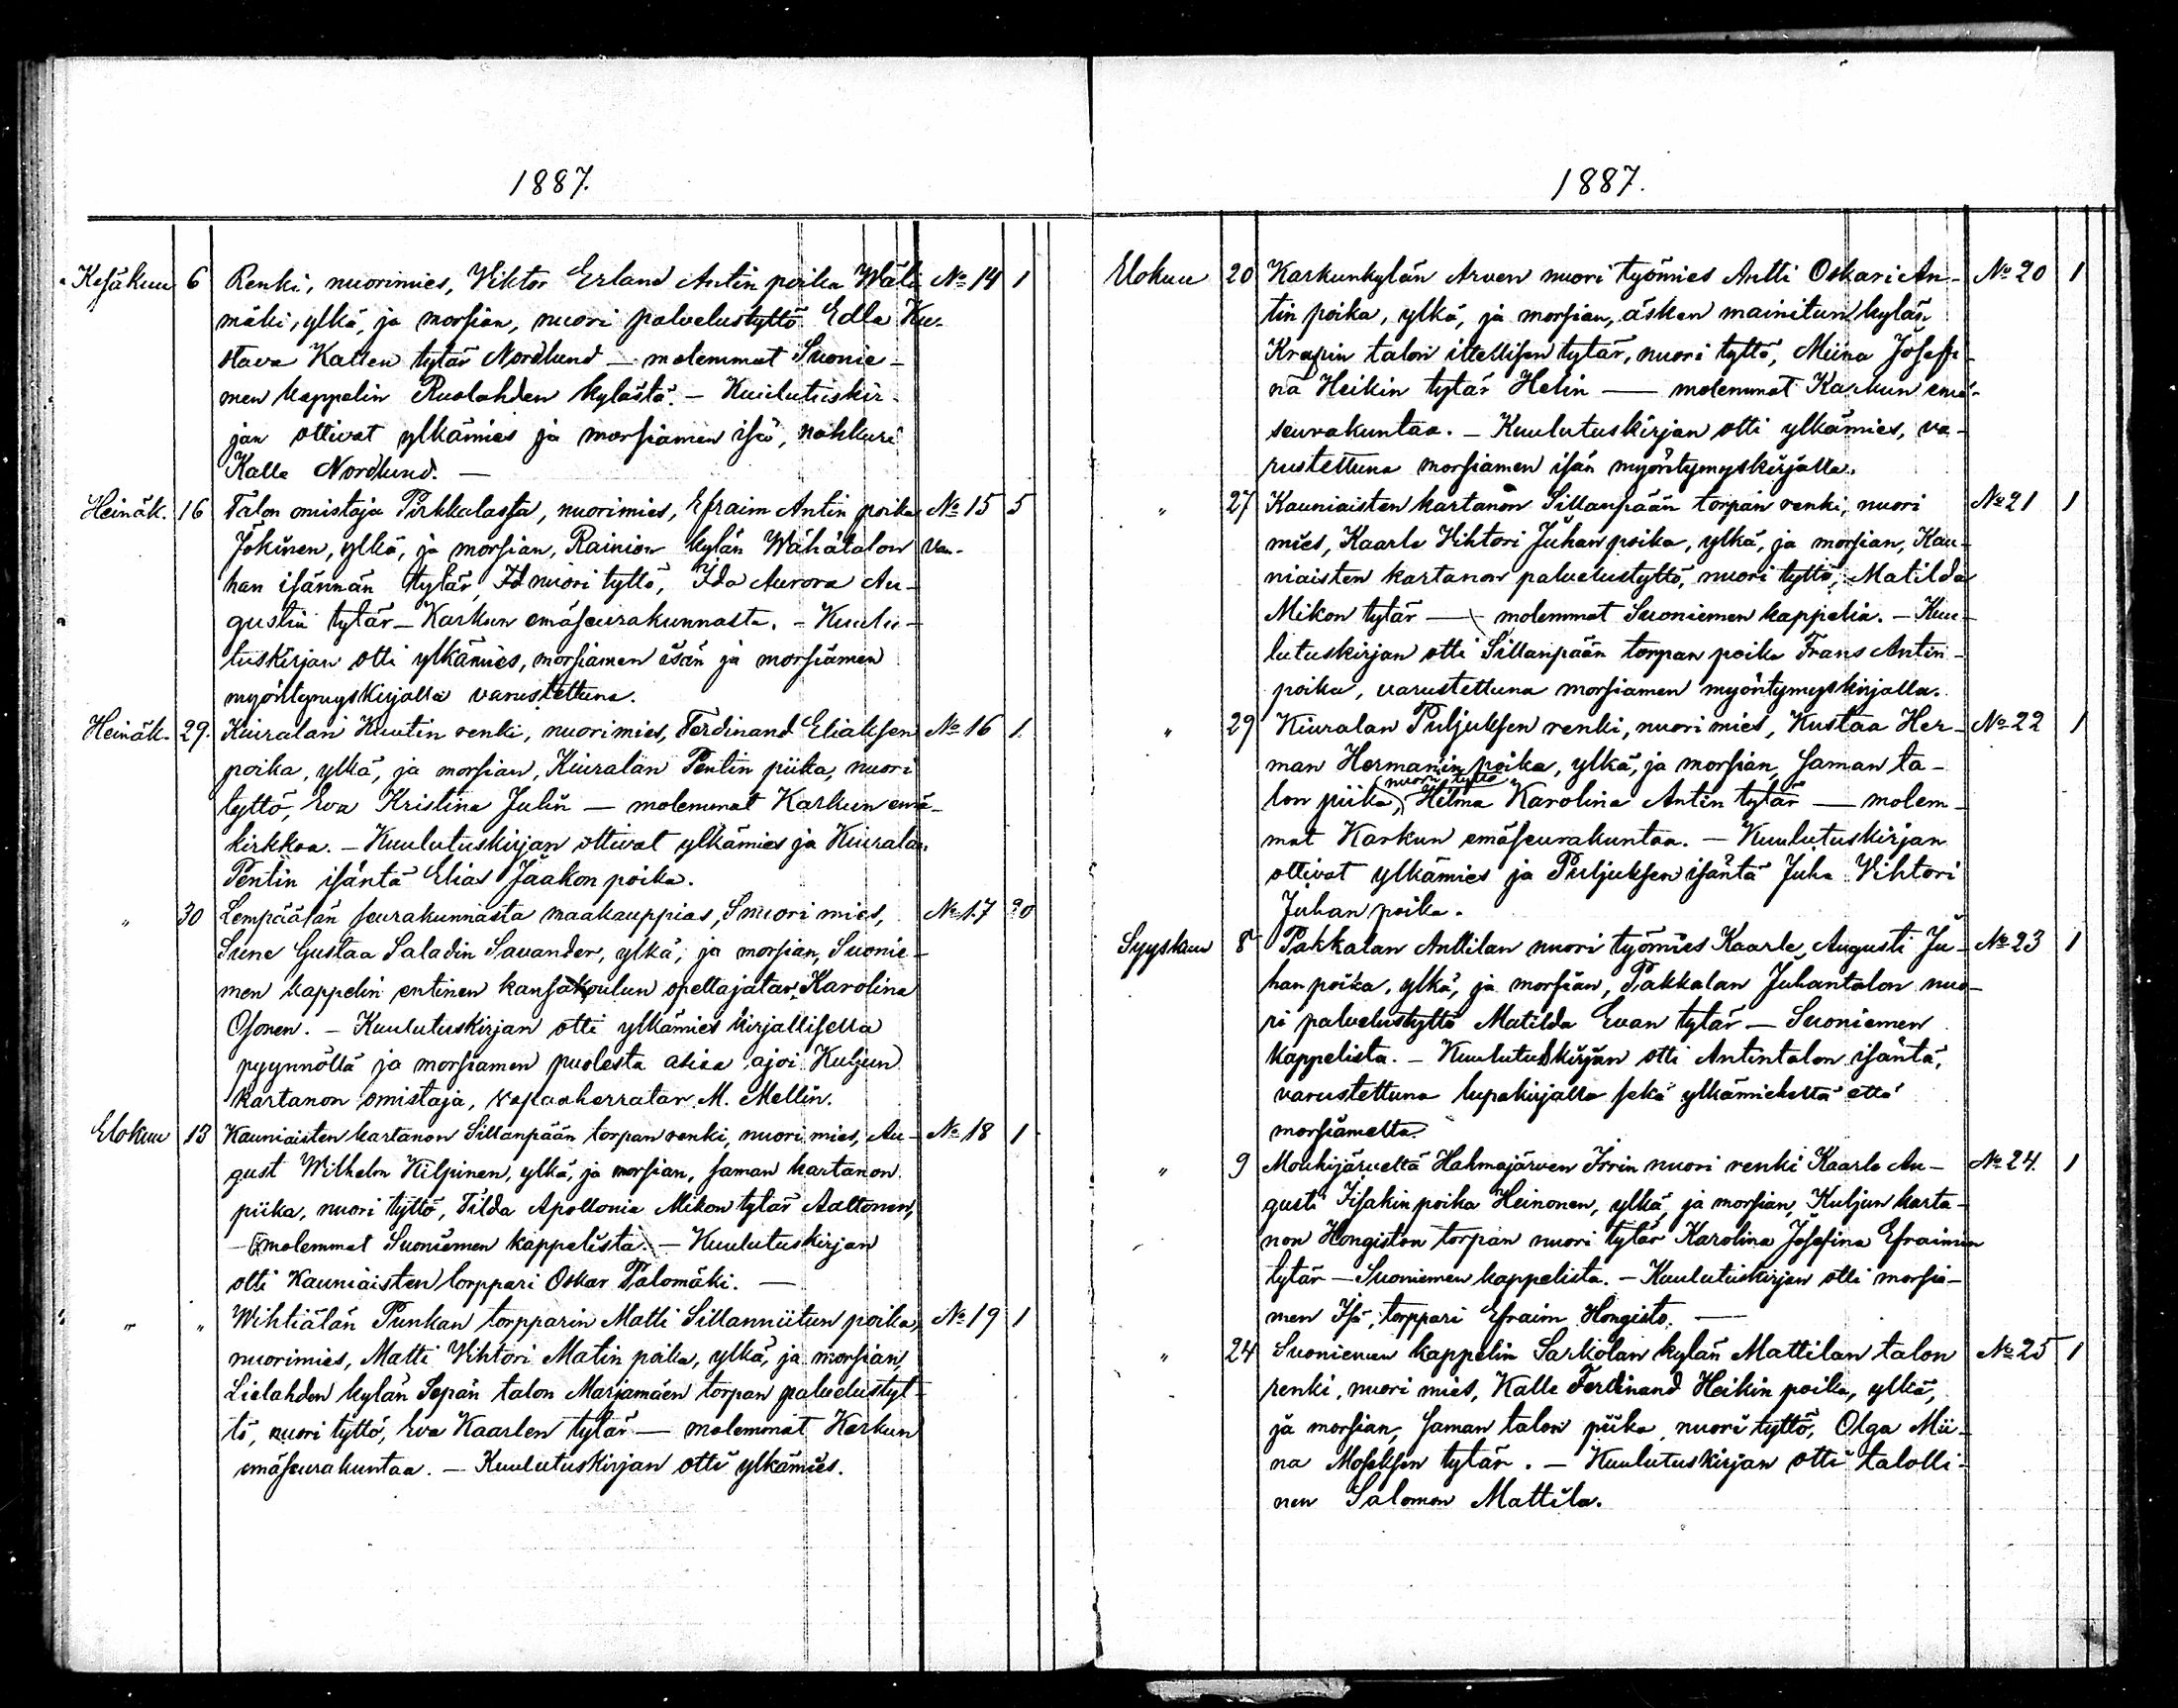 1887.
Kesäkuu 6 Renki, nuorimies, Viktor Erland Antin poika Wäli No 14 1
mäki, ylkä, ja morsian, nuori palvelustyttö Edla Ku-
stava Kallen tytär Nordlund — molemmat Suonie-
men kappelin Ruolahden kylästä. — Kuulutuskir-
jan ottivat ylkämies ja morsiamen isä, nahkuri
Kalle Nordlund. —
Heinäk. 16 Talon omistaja Pirkkalassa, nuorimies, Efraim Antin poika No 15 5
Jokinen, ylkä, ja morsian, Rainion kylän Wähätalon van-
han isännän tytär, Id nuori tyttö, Ida Aurora Au-
gustin tytär — Karkun emäseurakunnasta. — Kuulu-
tuskirjan otti ylkämies, morsiamen isän ja morsiamen
myöntymyskirjalla varustettuna.
Heinäk. 29. Kiuralan Kuutin renki, nuorimies, Ferdinand Eliaksen No 16 1.
poika, ylkä, ja morsian, Kiuralan Pentin piika, nuori
tyttö, Eva Kristina Julin — molemmat Karkun emä-
kirkkoa. — Kuulutuskirjan ottivat ylkämies ja Kiuralan
Pentin isäntä Elias Jaakon poika.
" 30 Lempäälän seurakunnasta maakauppias, S nuori mies, No 17 20
Sune Gustaa Saladin Savander, ylkä, ja morsian, Suonie-
men kappelin entinen kansakoulun opettajatar Karolina
Osonen. — Kuulutuskirjan otti ylkämies kirjallisella
pyynnöllä ja morsiamen puolesta asiaa ajoi Kuljun
kartanon omistaja, vapaaherratar M. Mellin.
Elokuu 13 Kauniaisten kartanon Sillanpään torpan renki, nuori mies, Au- No 18 1
gust Wilhelm Kilpinen, ylkä, ja morsian, saman kartanon
piika, nuori tyttö, Tilda Apollonia Mikon tytär Aaltonen,
— molemmat Suoniemen kappelista. — Kuulutuskirjan
otti Kauniaisten torppari Oskar Palomäki. —
" " Wihtiälän Punkan torpparin Matti Sillanniitun poika, No 19 1
nuorimies, Matti Vihtori Matin poika, ylkä, ja morsian,
Lielahden kylän Sepän talon Marjamäen torpan palvelustyt-
tö, nuori tyttö, Eva Kaarlen tytär — molemmat Karkun
emäseurakuntaa. — Kuulutuskirjan otti ylkämies.
1887.
Elokuu 20 Karkunkylän Arven nuori työmies Antti Oskari An- No 20 1
tin poika, ylkä, ja morsian, äsken mainitun kylän
Krapin talon itsellisen tytär, nuori tyttö, Miina Josefi-
na Heikin tytär Helin — molemmat Karkun emä-
seurakuntaa. — Kuulutuskirjan otti ylkämies, va-
rustettuna morsiamen isän myöntymyskirjalla.
" 27 Kauniaisten kartanon Sillanpään torpan renki, nuori No 21 1
mies, Kaarle Vihtori Juhan poika, ylkä, ja morsian, Kau-
niaisten kartanon palvelustyttö, nuori tyttö, Matilda
Mikon tytär — molemmat Suoniemen kappelia. — Kuu-
lutuskirjan otti Sillanpään torpan poika Frans Antin-
poika, varustettuna morsiamen myöntymyskirjalla.
" 29 Kiuralan Puljuksen renki, nuori mies, Kustaa Her- No 22 1
man Hermanin poika, ylkä, ja morsian, saman ta-
nuori tyttö
lon piika, Hilma Karolina Antin tytär — molem-
mat Karkun emäseurakuntaa. — Kuulutuskirjan
ottivat ylkämies ja Puljuksen isäntä Juha Vihtori
Juhan poika.
Syyskuu 8 Pakkalan Anttilan nuori työmies Kaarle Augusti Ju- No 23 1
han poika, ylkä, ja morsian, Pakkalan Juhantalon nuo-
ri palvelustyttö Matilda Evan tytär — Suoniemen
kappelista. — Kuulutuskirjan otti Antintalon isäntä,
varustettuna lupakirjalla sekä ylkämieheltä että
morsiamelta.
" 9 Mouhijärveltä Hahmajärven Irrin nuori renki Kaarle Au- No 24. 1
gusti Iisakin poika Heinonen, ylkä, ja morsian, Kuljun karta-
non Hongiston torpan nuori tytär Karolina Josefina Efraimin
tytär — Suoniemen kappelista. — Kuulutuskirjan otti morsia-
men Isä, torppari Efraim Hongisto. —
" 24 Suoniemen kappelin Sarkolan kylän Mattilan talon No 25 1
renki, nuori mies, Kalle Ferdinand Heikin poika, ylkä,
ja morsian, saman talon piika, nuori tyttö, Olga Mii-
na Moseksen tytär. — Kuulutuskirjan otti talolli-
nen Salomon Mattila.